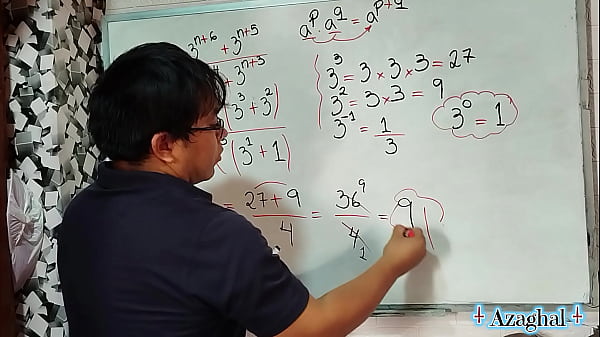 a^p · a^q = a^(p+q)
3^(n+6) + 3^(n+5)
3^(n+5)
3^3 = 3 × 3 × 3 = 27
3^2 = 3 × 3 = 9
3^-1 = 1/3
3^0 = 1
3^3 + 3^2)
(3^1 + 1)
= 27 + 9 / 4 = 36 9 / 4 1 = 9
+ Azaghal +